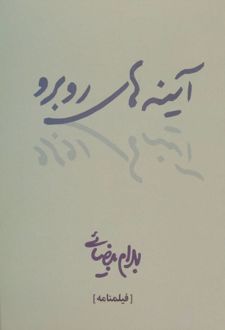 آینه‌های روبرو
بهرام بیضائی
[فیلمنامه]